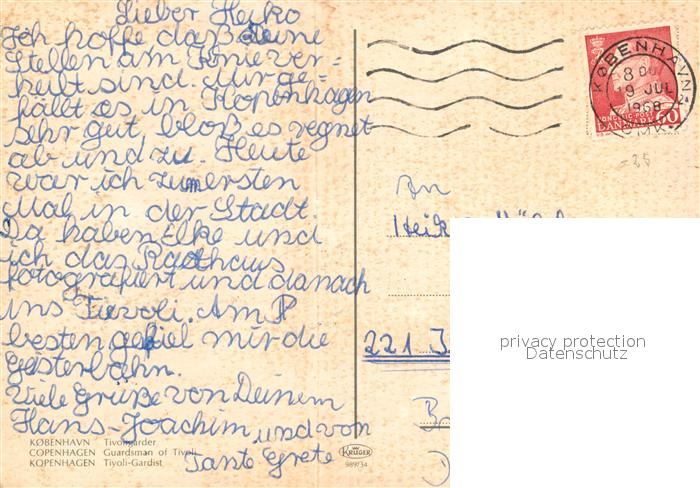 Lieber Heiko
Ich hoffe daß Deine
Stellen am Knie ver-
heilt sind. Mir ge-
fällt es in Kopenhagen
sehr gut, bloß es regnet
ab und zu. Heute
war ich zum ersten
Mal in der Stadt.
Da haben Elke und
ich das Rathaus
fotografiert und danach
ins Tievoli. Am
besten gefiel mir die
Geisterbahn.
Viele Grüße von Deinem
Hans-Joachim und von
Tante Grete
KØBENHAVN Tivoligarder
COPENHAGEN Guardsman of Tivoli
KOPENHAGEN Tivoli-Gardist
KRÜGER
989/34
KØBENHAVN
19 JUL
1968
DANMARK 60
-25
An
221
privacy protection
Datenschutz